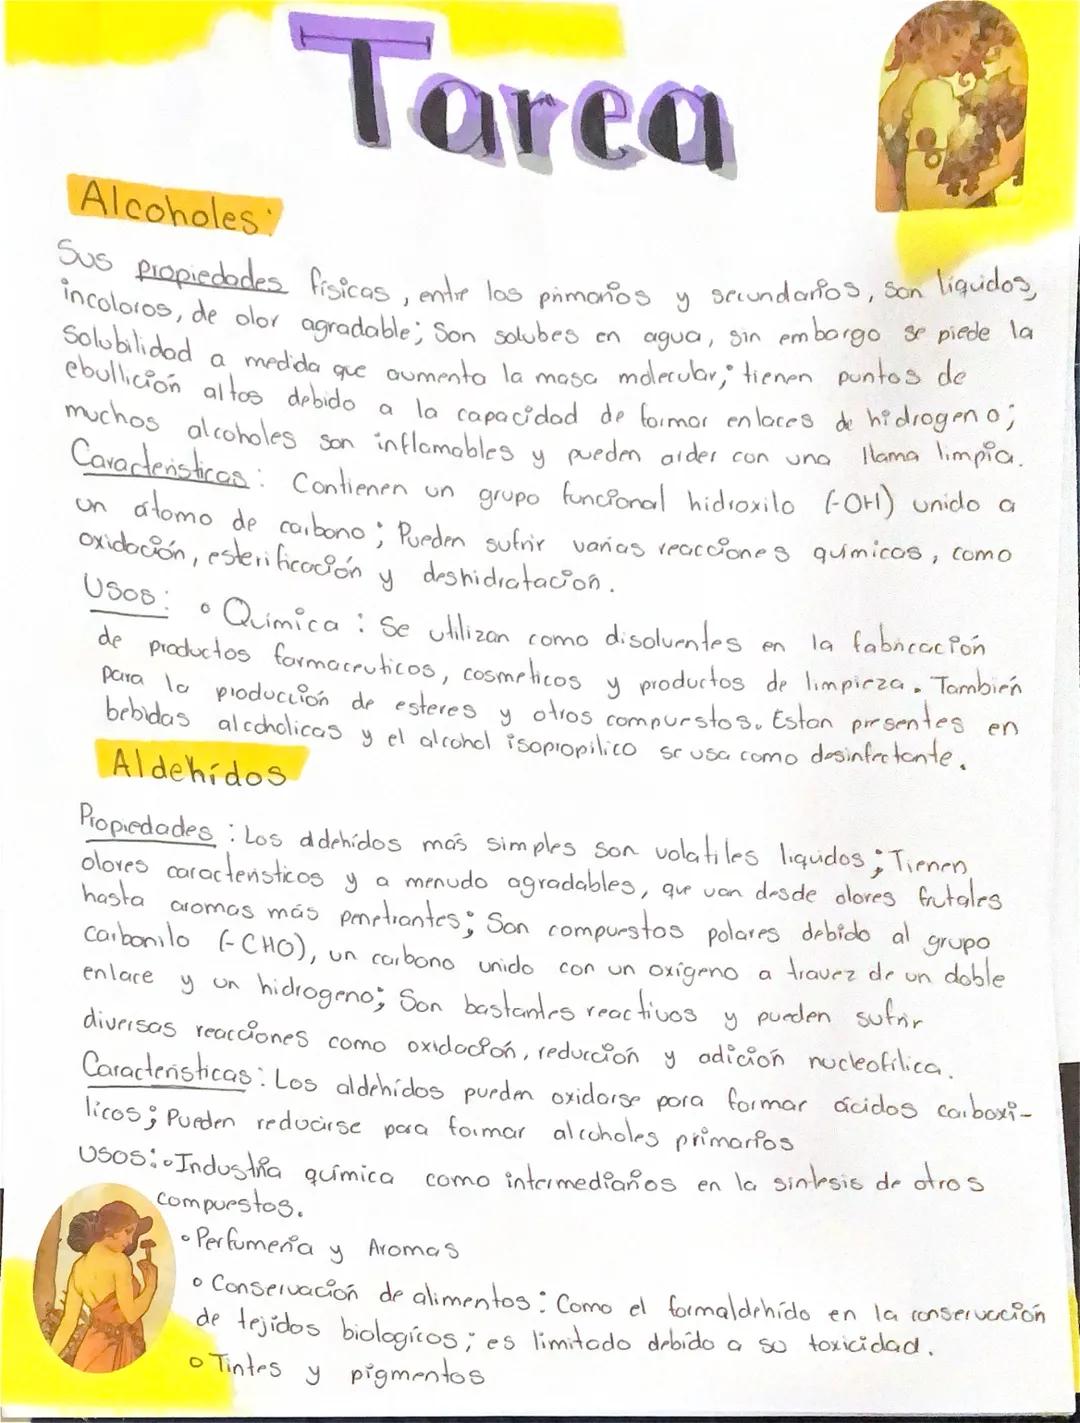 Tarea
Alcoholes:
Sus propiedades físicas, entre los primarios y secundarios, son líquidos,
incoloros, de olor agradable; Son solubes en agua, sin embargo se piede la
Solubilidad a medida que aumenta la masa molecular; tienen puntos de
ebullición altos debido a la capacidad de formar enlaces de hidrogeno;
muchos alcoholes son inflamables y pueden arder con una llama limpia.
Características: Contienen un grupo funcional hidroxilo (-OH) unido a
un átomo de carbono; Pueden sufrir varias reacciones químicas, como
oxidación, esterificación y deshidratación.
Usos: • Química: Se utilizan como disolventes en la fabricación
de productos farmaceuticos, cosmeticos y productos de limpieza. También
para la producción de esteres y otros compuestos. Estan presentes en
bebidas alcoholicas y el alcohol isopropilico se usa como desinfectante.
Aldehídos
Propiedades: Los aldehídos más simples son volatiles liquidos; Tienen
olores caracteristicos y a menudo agradables, que van desde olores frutales
hasta aromas más penetrantes; Son compuestos polares debido al grupo
carbonilo (-CHO), un carbono unido con un oxígeno a travez de un doble
enlace y un hidrogeno; Son bastantes reactivos y pueden sufrir
diversas reacciones como oxidación, reducción y adición nucleofílica.
Características: Los aldehídos pueden oxidarse para formar ácidos carboxi-
licos; Pueden reducirse para formar alcoholes primarios
Usos: • Industria química como intermediarios en la sintesis de otros
compuestos.
• Perfumería y Aromas
• Conservación de alimentos: Como el formaldehído en la conservación
de tejidos biologícos; es limitado debido a su toxicidad.
• Tintes y pigmentos